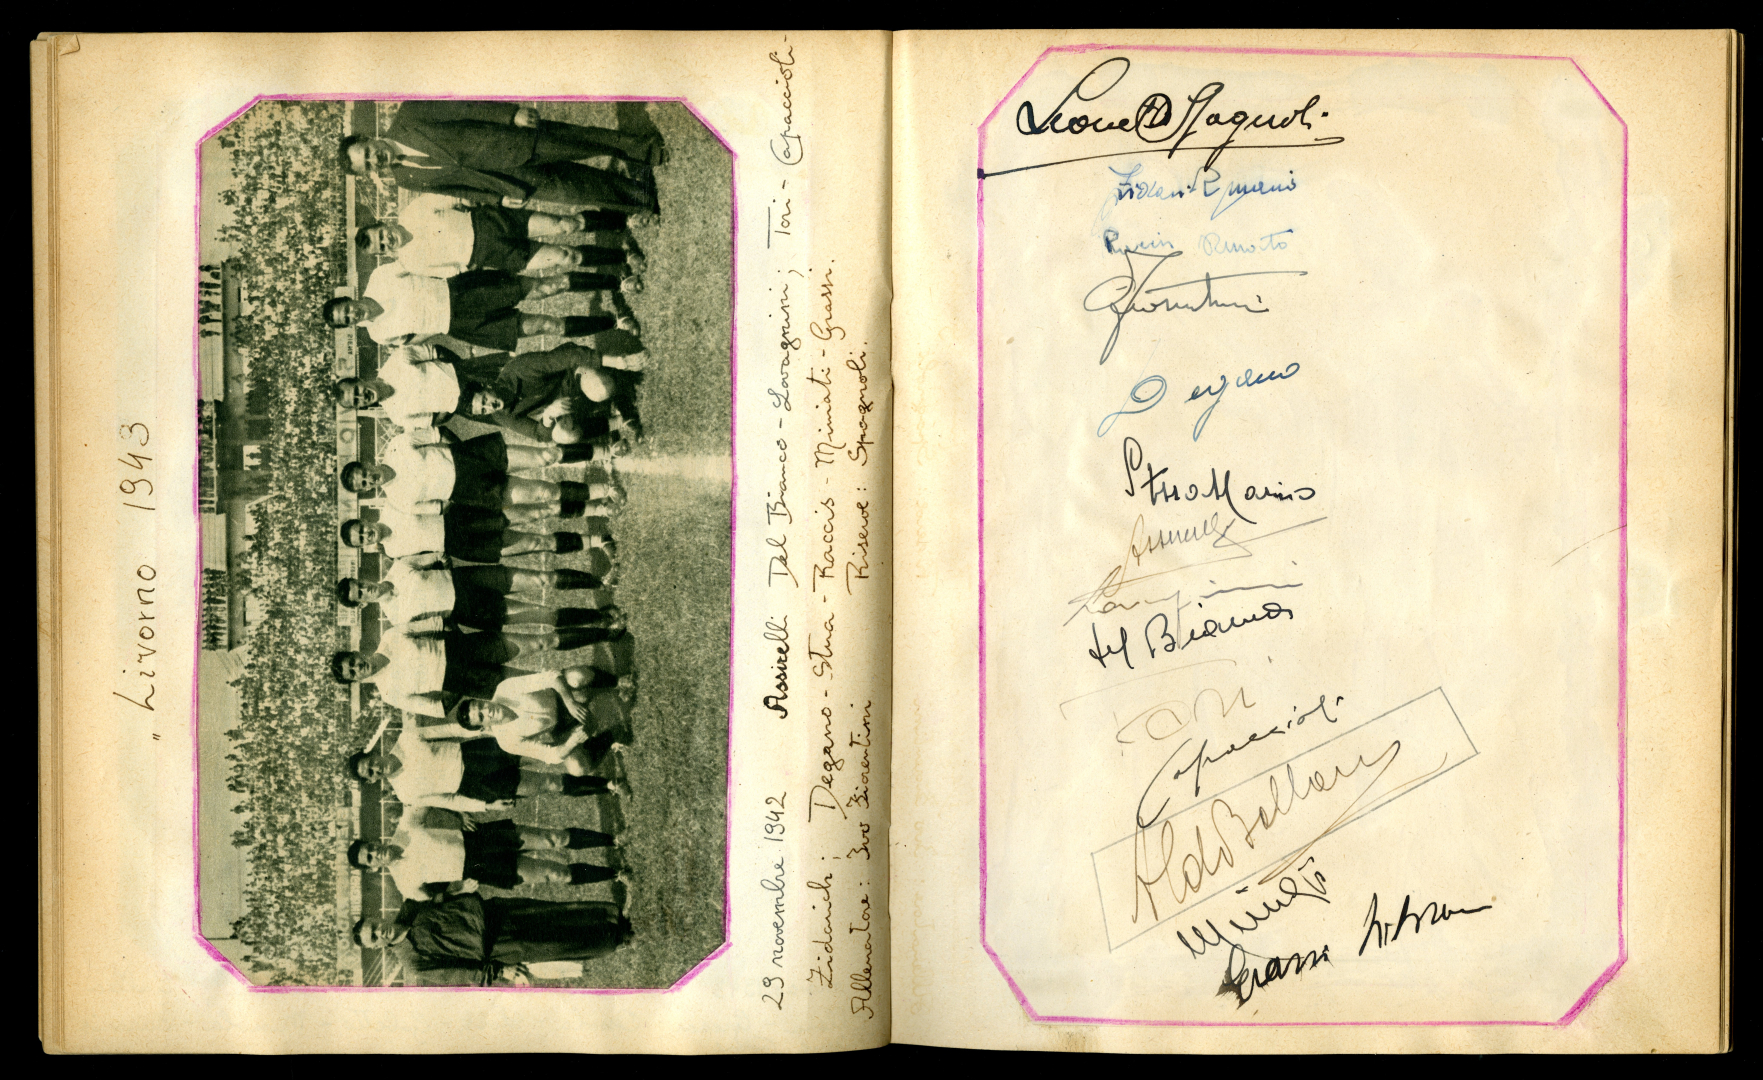 " Livorno 1943
29 novembre 1942 Assirelli Del Bianco - Lovagnini ; Tori - Capaccioli -
Zidarich ; Degano - Stua - Raccis - Miniati - Grassi.
Allenatore: Ivo Fiorentini Riserve: Spagnoli.
Zidarich Romano
Renato
Fiorentini
Degano
Stua Marino
Assirelli
del Bianco
Tori
Capaccioli
Aldo
Miniati
Grassi